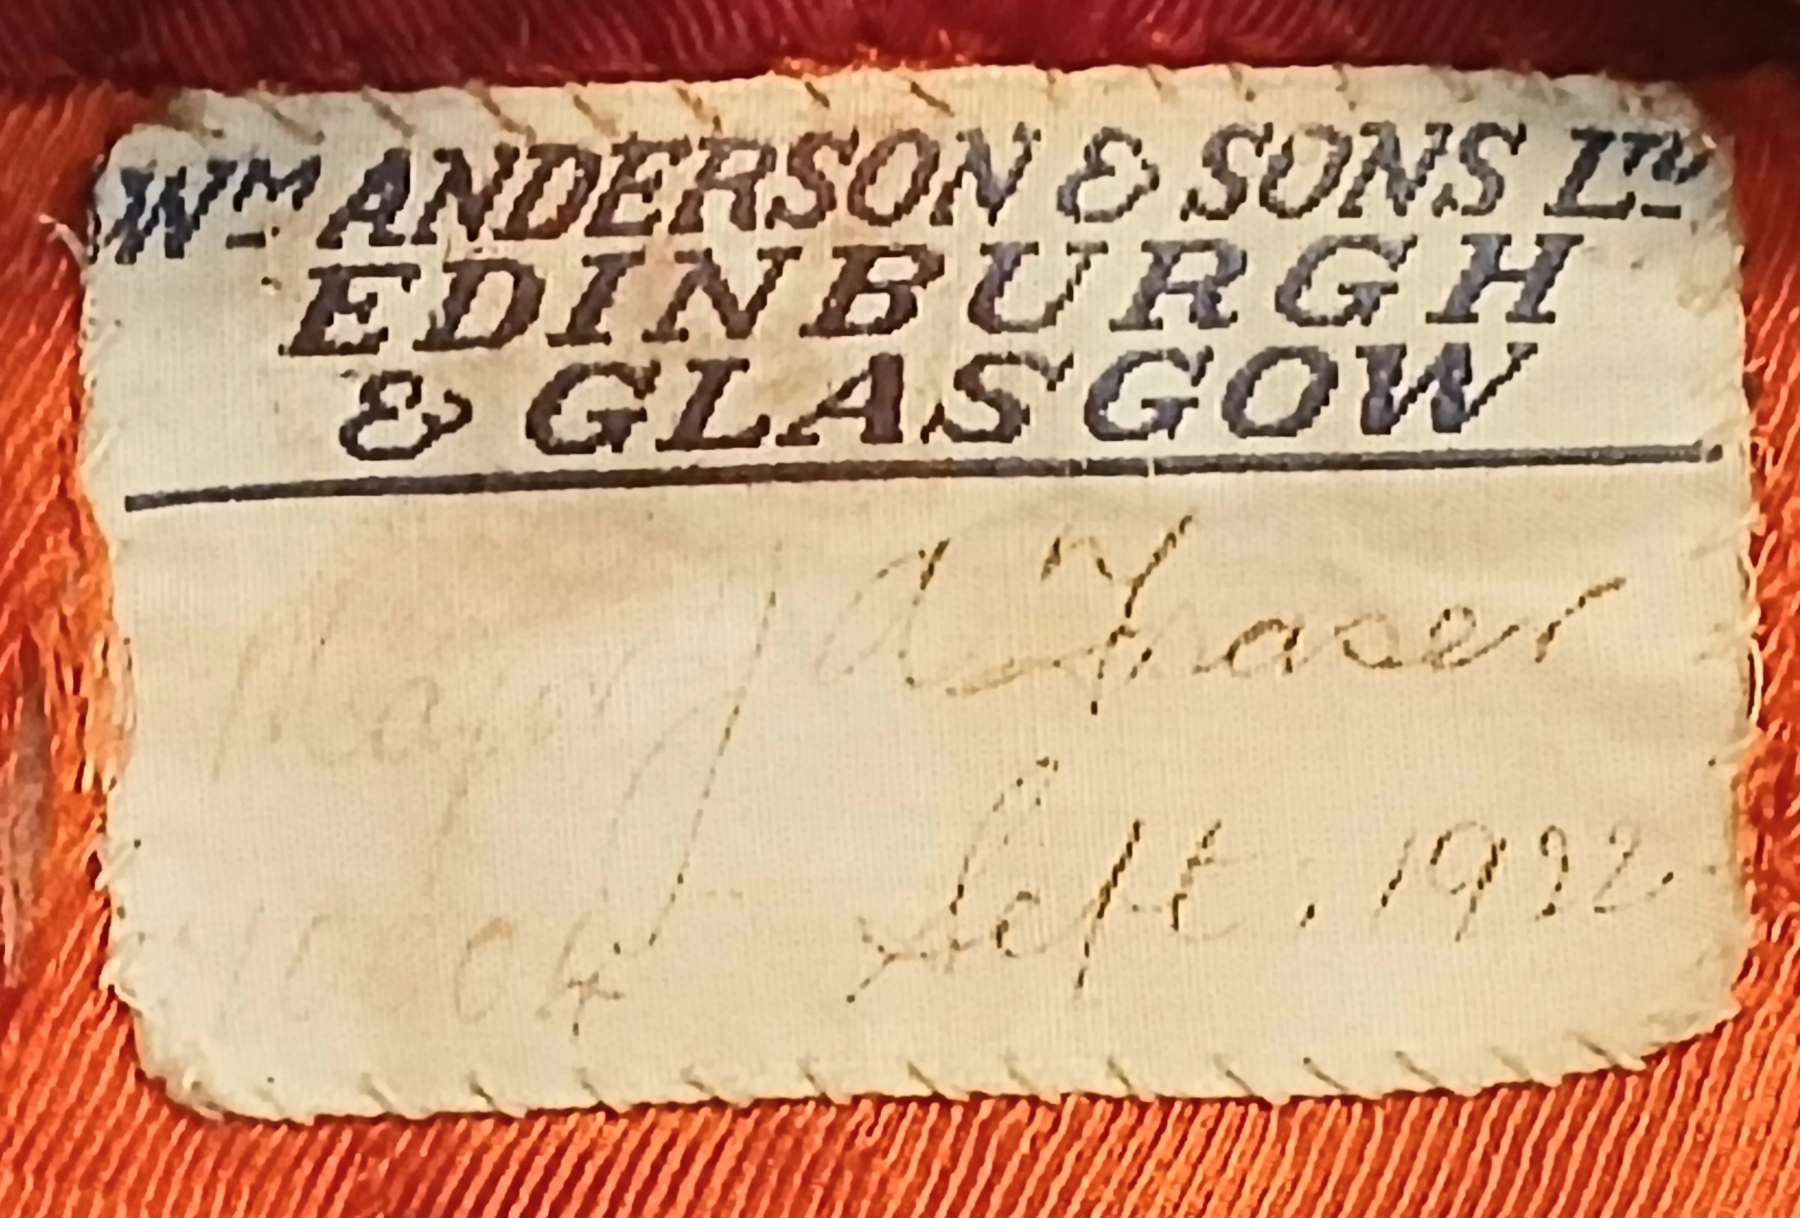 Wm ANDERSON & SONS LTD
EDINBURGH
& GLASGOW
Major J A Fraser
Sept. 1922